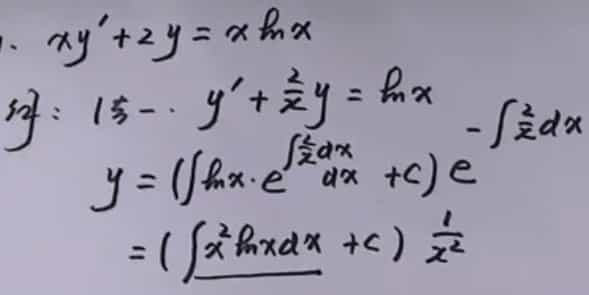 . xy' + 2y = x ln x
解: 法一. y' + 2/x y = ln x
y = (∫ ln x · e^{∫ 2/x dx} dx + c) e^{-∫ 2/x dx}
= (∫ x² ln x dx + c) 1/x²